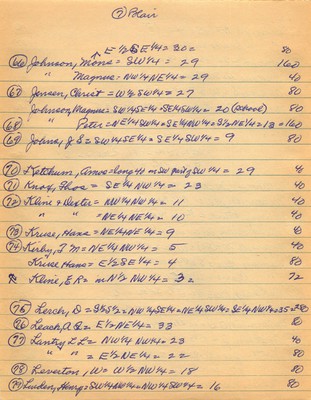 ⑦ Blair
E½SE¼ = 30 = 80
66 Johnson, Mons = SW¼ = 29 160
" Magnus = NW¼NE¼ = 29 40
67 Jensen, Christ = W½SW¼ = 27 80
Johnson, Magnus = SW¼SE¼ = SE¼SW¼ = 20 (School) 80
68 " Peter = NE¼SW¼ = SE¼NW¼ = S½NE¼ = 18 = 160
69 Johns, J S = SW¼SE¼ = SE¼SW¼ = 9 80
70 Ketchum, Amos = long 41 m SW part of SW¼ = 29 40
71 Knox, Thos = SE¼NW¼ = 23 40
72 Kline & Dexter = NW¼NW¼ = 11 40
" " = NE¼NE¼ = 10 40
73 Kruse, Hans = NE¼NE¼ = 9 40
74 Kerby, T M = NE¼NW¼ = 5 40
Kruse Hans = E½SE¼ = 4 80
Kline, E R = N½NW¼ = 3 = 72
75 Lerch, D = S½S½ = NW¼SE¼ = NE¼SW¼ = SE¼NW¼ = 35 = 280
76 Leach, A Q = E½NE¼ = 33 80
77 Lantry L L = NW¼NW¼ = 23 40
" " = E½NE¼ = 22 80
78 Leverton, W = W½NW¼ = 18 80
79 Linden, Henry = SW¼NW¼ = NW¼SW¼ = 16 80